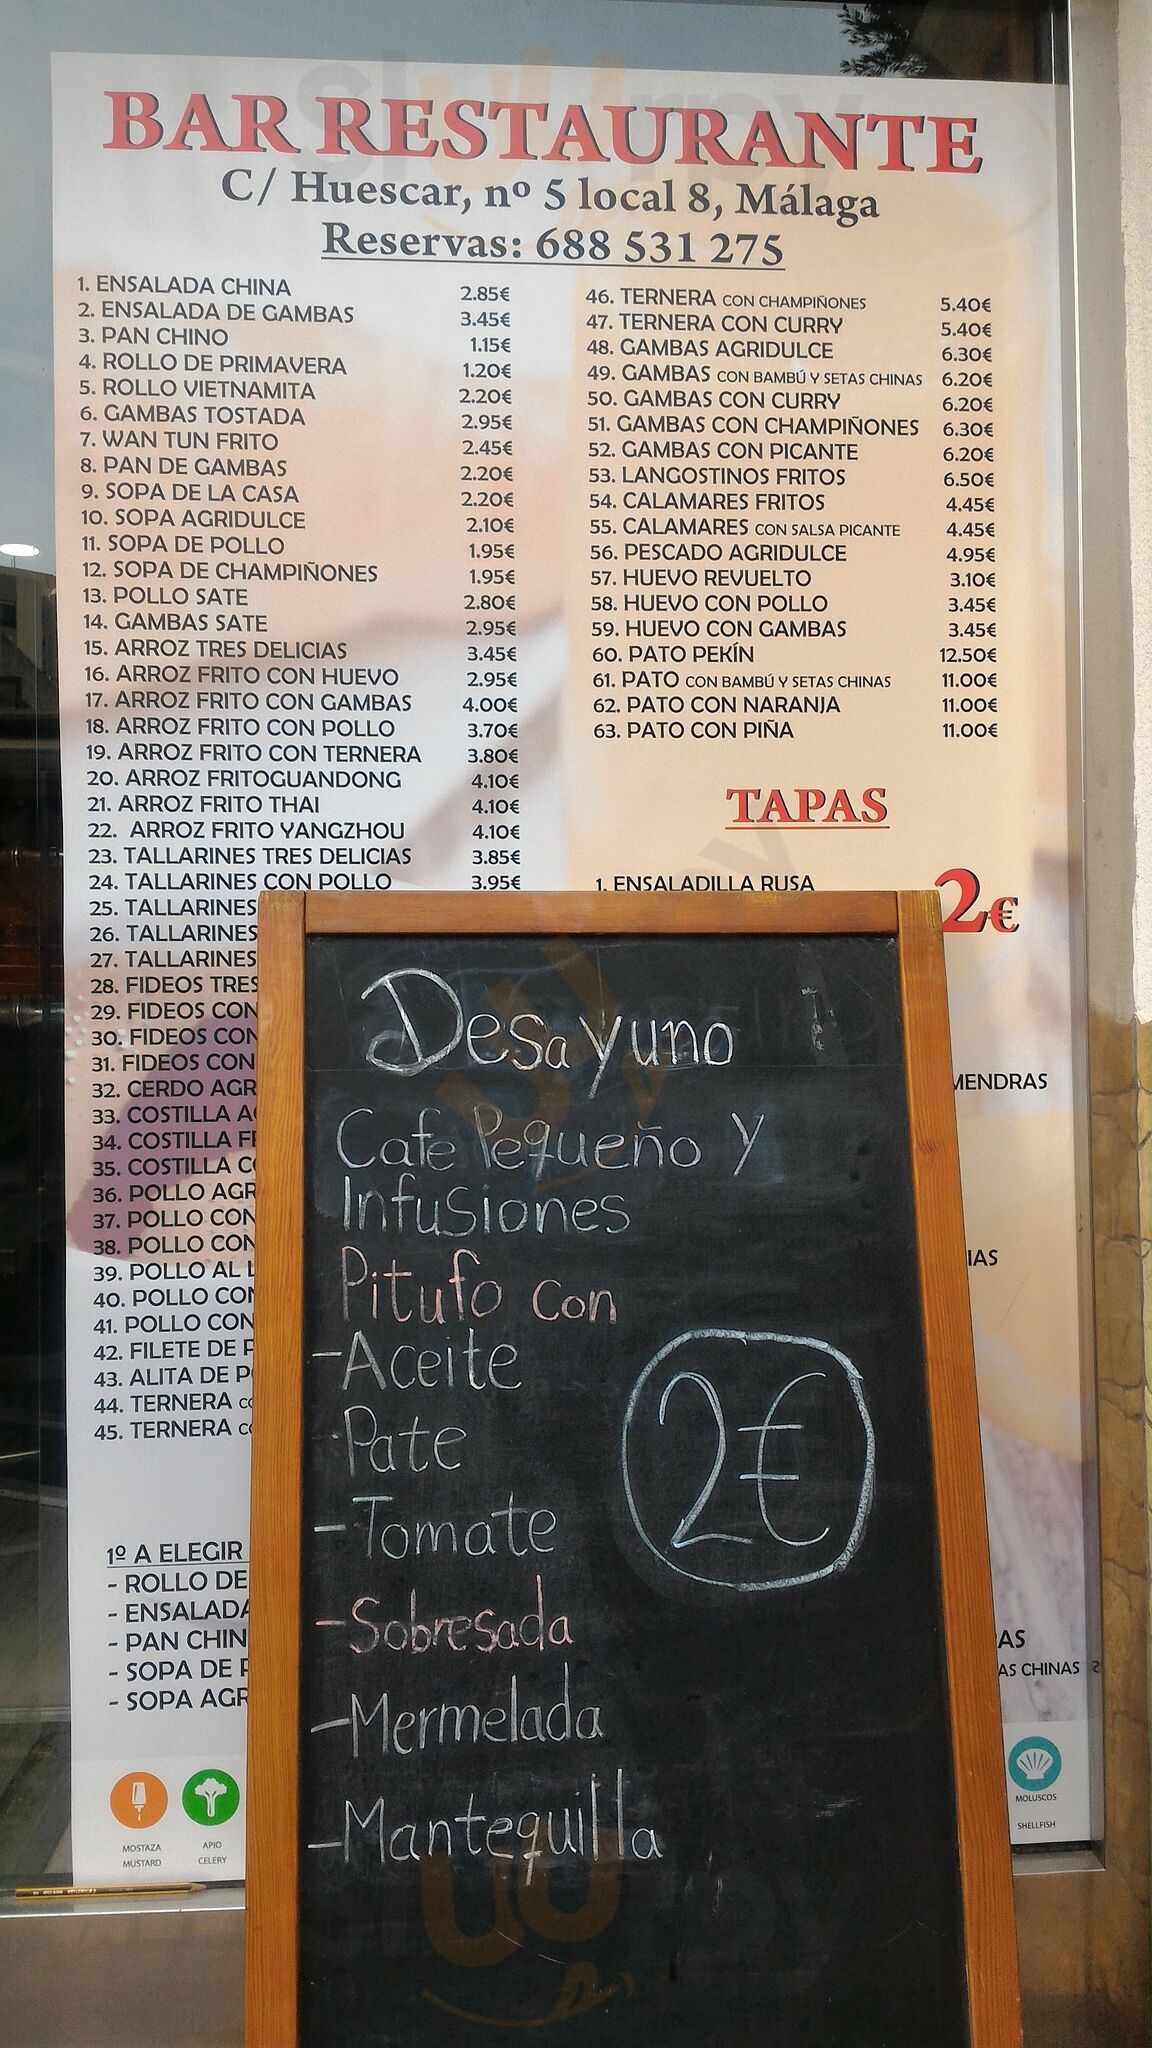 BAR RESTAURANTE
C/ Huescar, nº 5 local 8, Málaga
Reservas: 688 531 275
1. ENSALADA CHINA 2.85€
2. ENSALADA DE GAMBAS 3.45€
3. PAN CHINO 1.15€
4. ROLLO DE PRIMAVERA 1.20€
5. ROLLO VIETNAMITA 2.20€
6. GAMBAS TOSTADA 2.95€
7. WAN TUN FRITO 2.45€
8. PAN DE GAMBAS 2.20€
9. SOPA DE LA CASA 2.20€
10. SOPA AGRIDULCE 2.10€
11. SOPA DE POLLO 1.95€
12. SOPA DE CHAMPIÑONES 1.95€
13. POLLO SATE 2.80€
14. GAMBAS SATE 2.95€
15. ARROZ TRES DELICIAS 3.45€
16. ARROZ FRITO CON HUEVO 2.95€
17. ARROZ FRITO CON GAMBAS 4.00€
18. ARROZ FRITO CON POLLO 3.70€
19. ARROZ FRITO CON TERNERA 3.80€
20. ARROZ FRITOGUANDONG 4.10€
21. ARROZ FRITO THAI 4.10€
22. ARROZ FRITO YANGZHOU 4.10€
23. TALLARINES TRES DELICIAS 3.85€
24. TALLARINES CON POLLO 3.95€
25. TALLARINES
26. TALLARINES
27. TALLARINES
28. FIDEOS TRES
29. FIDEOS CON
30. FIDEOS CON
31. FIDEOS CON
32. CERDO AGR
33. COSTILLA A
34. COSTILLA F
35. COSTILLA C
36. POLLO AGR
37. POLLO CON
38. POLLO CON
39. POLLO AL L
40. POLLO CON
41. POLLO CON
42. FILETE DE P
43. ALITA DE P
44. TERNERA CO
45. TERNERA CO
1º A ELEGIR
- ROLLO DE
- ENSALADA
- PAN CHIN
- SOPA DE P
- SOPA AGR
MOSTAZA
MUSTARD
APIO
CELERY
46. TERNERA CON CHAMPIÑONES 5.40€
47. TERNERA CON CURRY 5.40€
48. GAMBAS AGRIDULCE 6.30€
49. GAMBAS CON BAMBÚ Y SETAS CHINAS 6.20€
50. GAMBAS CON CURRY 6.20€
51. GAMBAS CON CHAMPIÑONES 6.30€
52. GAMBAS CON PICANTE 6.20€
53. LANGOSTINOS FRITOS 6.50€
54. CALAMARES FRITOS 4.45€
55. CALAMARES CON SALSA PICANTE 4.45€
56. PESCADO AGRIDULCE 4.95€
57. HUEVO REVUELTO 3.10€
58. HUEVO CON POLLO 3.45€
59. HUEVO CON GAMBAS 3.45€
60. PATO PEKÍN 12.50€
61. PATO CON BAMBÚ Y SETAS CHINAS 11.00€
62. PATO CON NARANJA 11.00€
63. PATO CON PIÑA 11.00€
TAPAS
1. ENSALADILLA RUSA
2€
MENDRAS
IAS
AS
AS CHINAS
MOLUSCOS
SHELLFISH
Desayuno
Cafe Pequeño y
Infusiones
Pitufo con
-Aceite
-Pate
-Tomate
-Sobresada
-Mermelada
-Mantequilla
2€